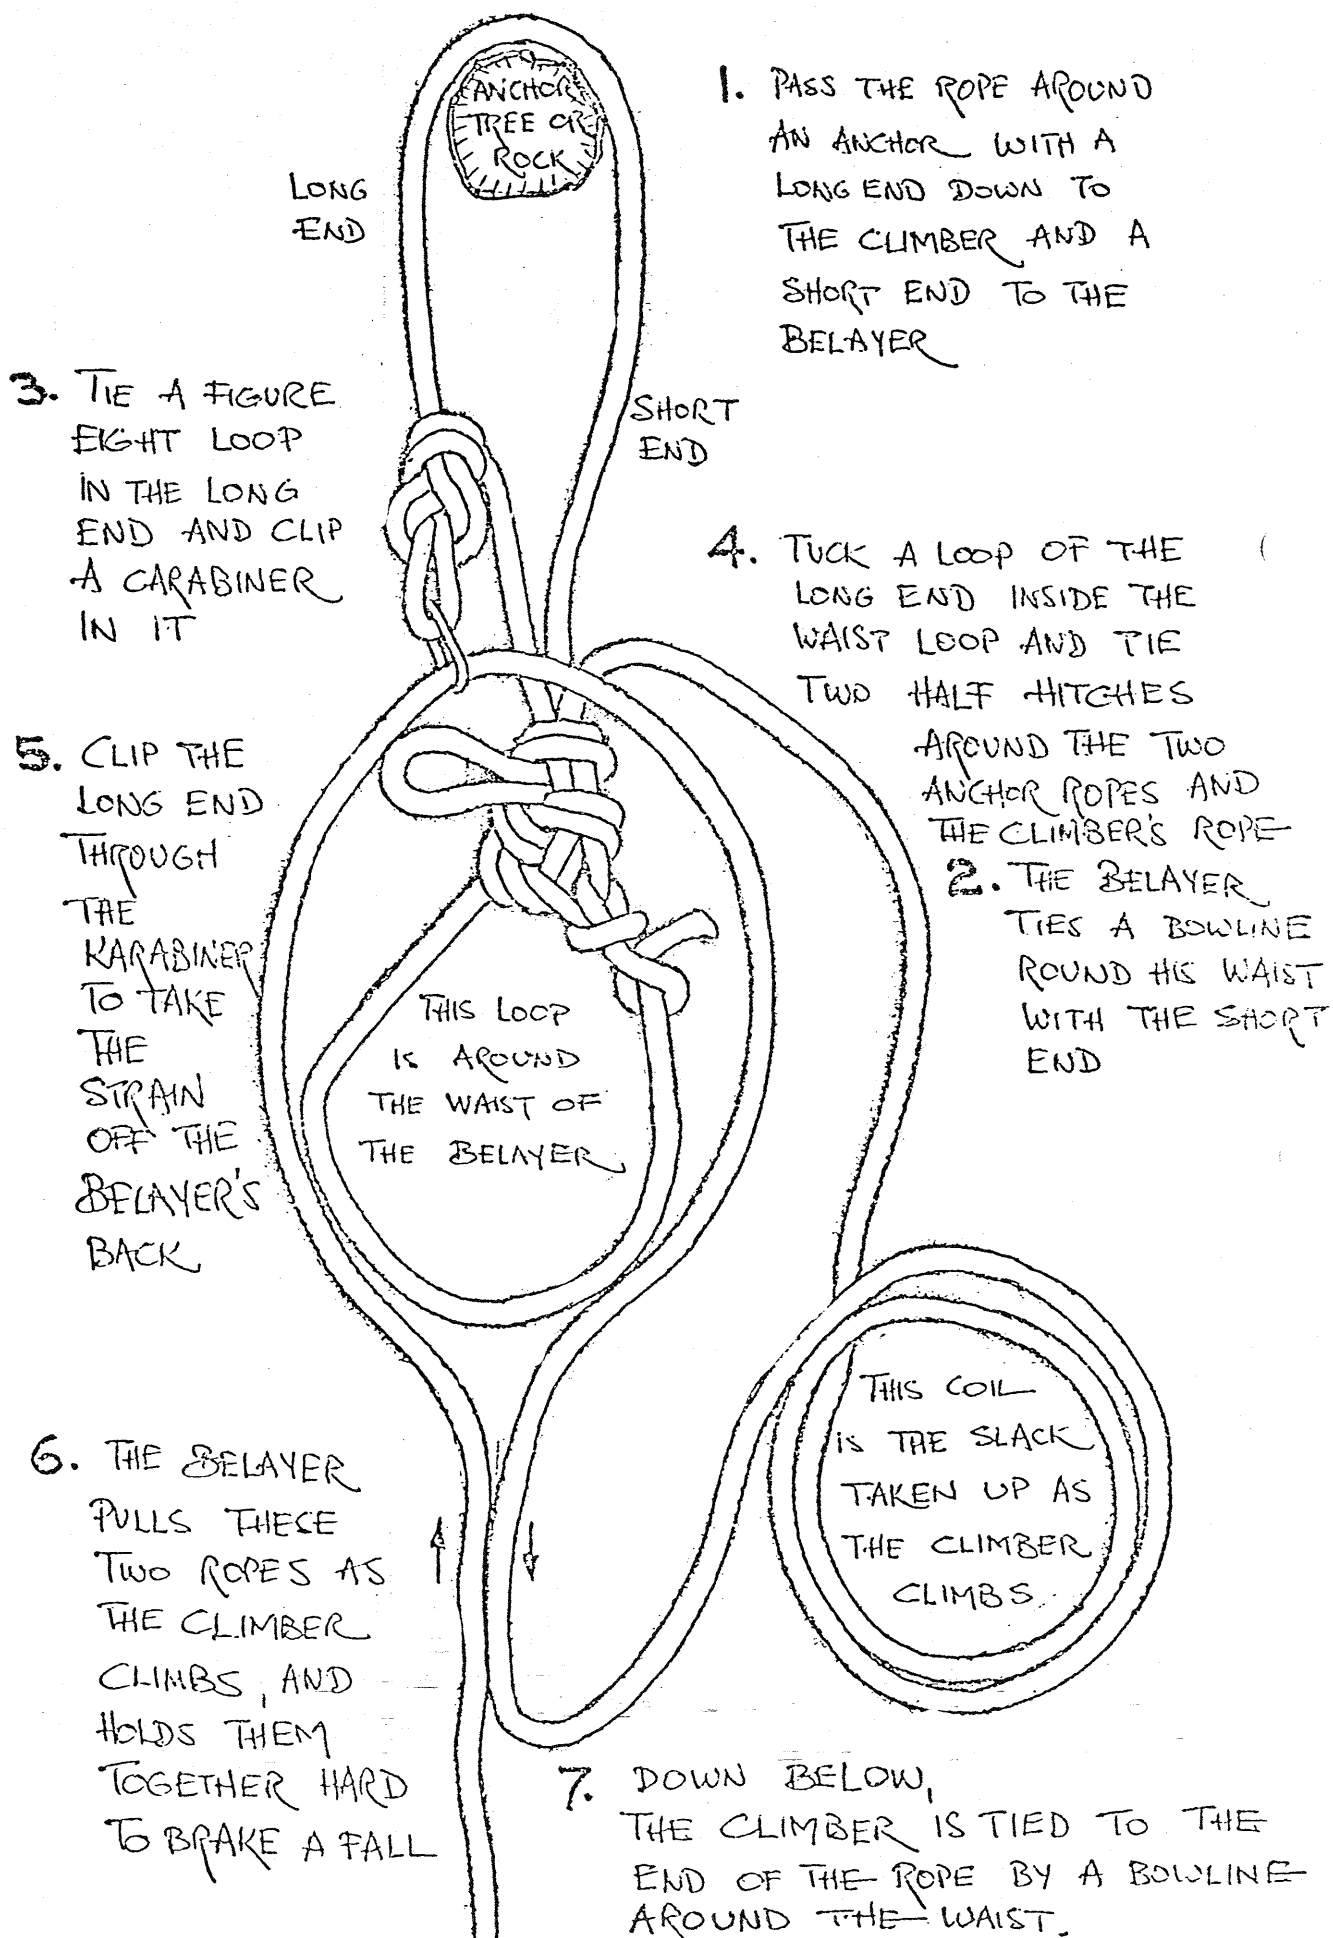 ANCHOR
TREE OR
ROCK
LONG
END
1. PASS THE ROPE AROUND
AN ANCHOR WITH A
LONG END DOWN TO
THE CLIMBER AND A
SHORT END TO THE
BELAYER
SHORT
END
2. THE BELAYER
TIES A BOWLINE
ROUND HIS WAIST
WITH THE SHORT
END
3. TIE A FIGURE
EIGHT LOOP
IN THE LONG
END AND CLIP
A CARABINER
IN IT
4. TUCK A LOOP OF THE
LONG END INSIDE THE
WAIST LOOP AND TIE
TWO HALF HITCHES
AROUND THE TWO
ANCHOR ROPES AND
THE CLIMBER'S ROPE
5. CLIP THE
LONG END
THROUGH
THE
KARABINER
TO TAKE
THE
STRAIN
OFF THE
BELAYER'S
BACK
THIS LOOP
IS AROUND
THE WAIST OF
THE BELAYER
THIS COIL
IS THE SLACK
TAKEN UP AS
THE CLIMBER
CLIMBS
6. THE BELAYER
PULLS THESE
TWO ROPES AS
THE CLIMBER
CLIMBS, AND
HOLDS THEM
TOGETHER HARD
TO BRAKE A FALL
7. DOWN BELOW,
THE CLIMBER IS TIED TO THE
END OF THE ROPE BY A BOWLINE
AROUND THE WAIST.